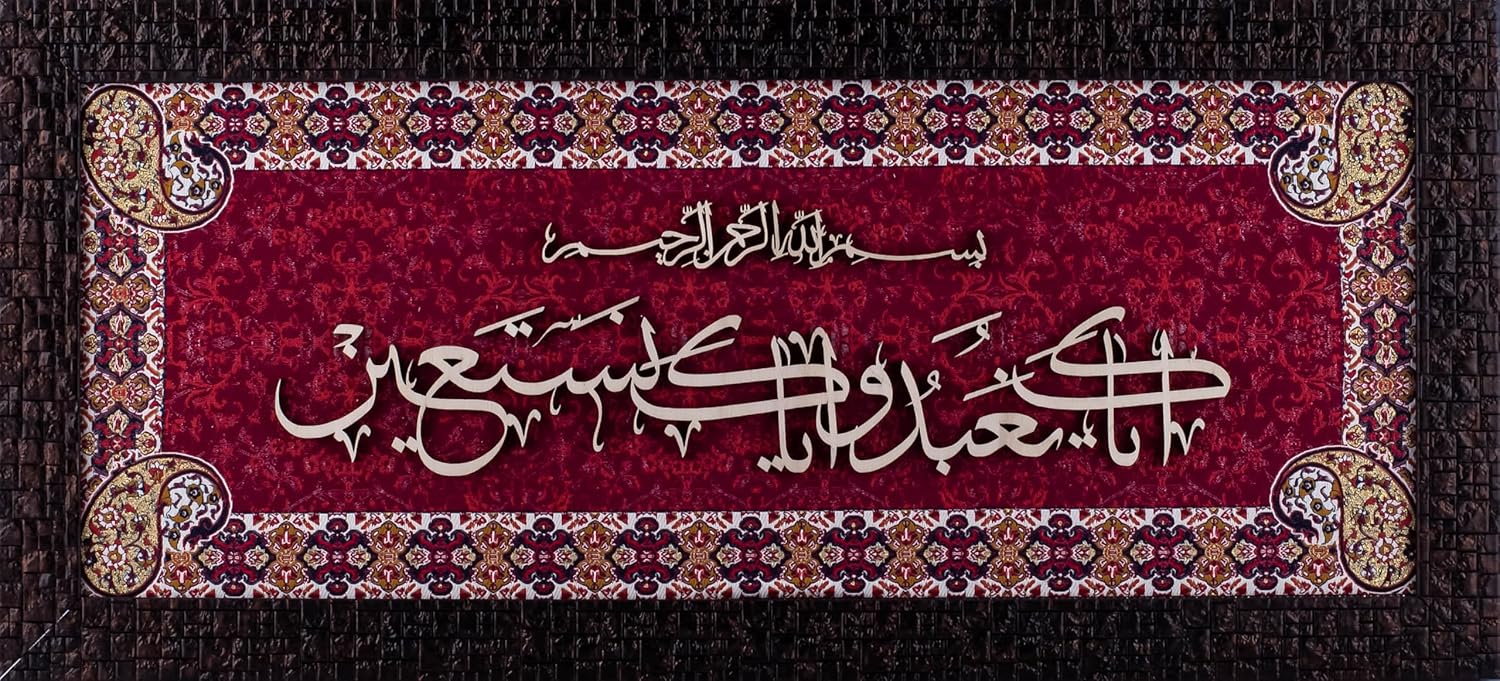 بسم الله الرحمن الرحيم
اياك نعبد واياك نستعين